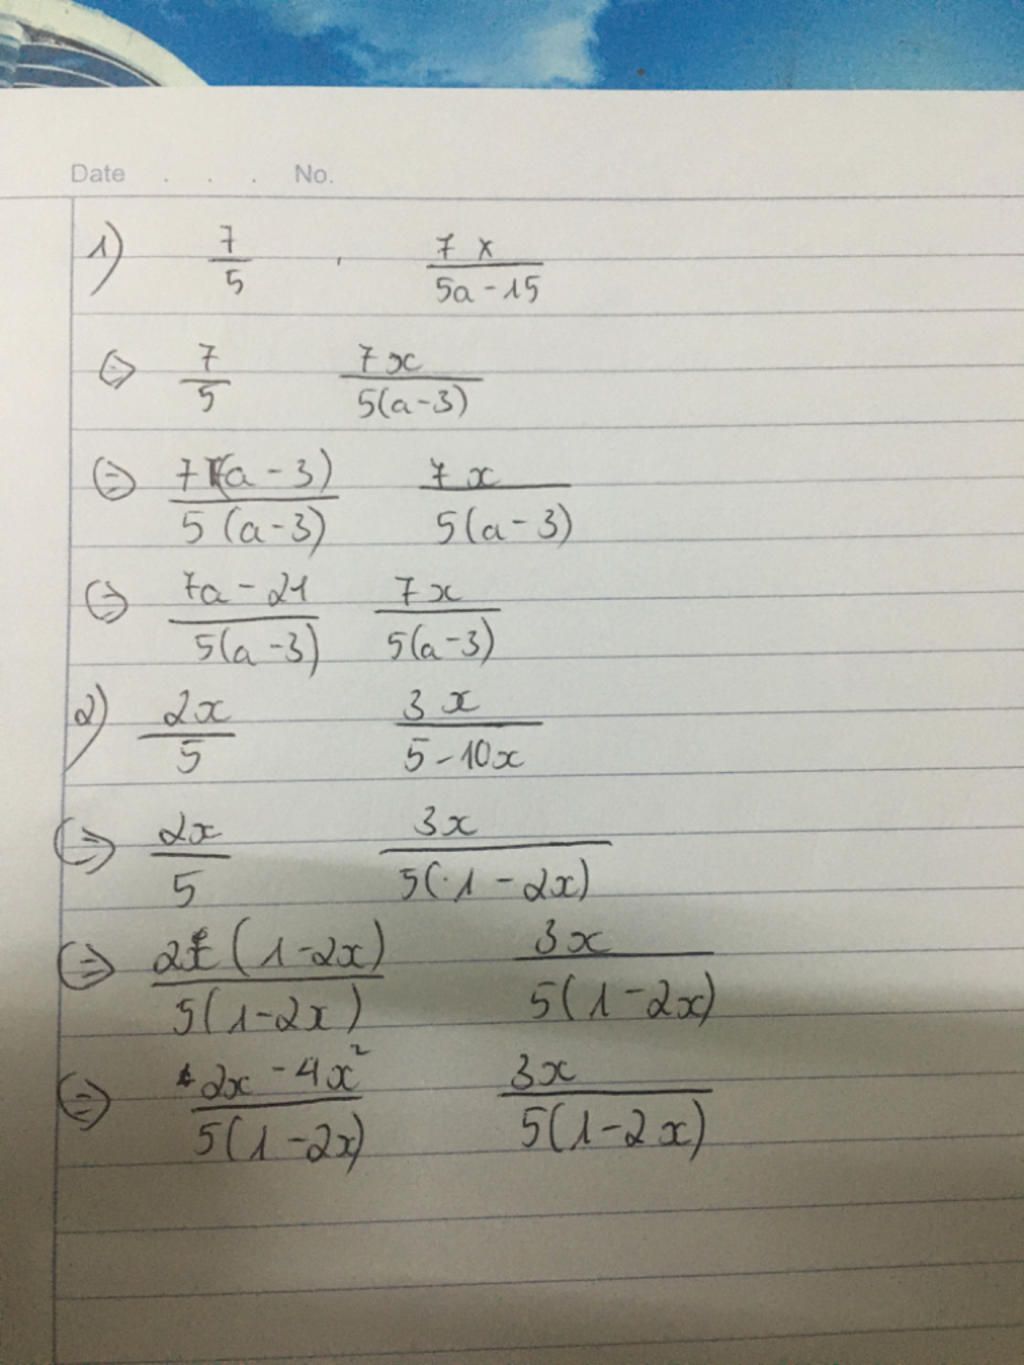 Date . . . No.
1) 7/5 , 7x/(5a-15)
⇔ 7/5 7x/(5(a-3))
⇔ 7(a-3)/(5(a-3)) 7x/(5(a-3))
⇔ (7a-21)/(5(a-3)) 7x/(5(a-3))
2) 2x/5 3x/(5-10x)
⇔ 2x/5 3x/(5(1-2x))
⇔ 2x(1-2x)/(5(1-2x)) 3x/(5(1-2x))
⇔ (2x-4x²)/(5(1-2x)) 3x/(5(1-2x))